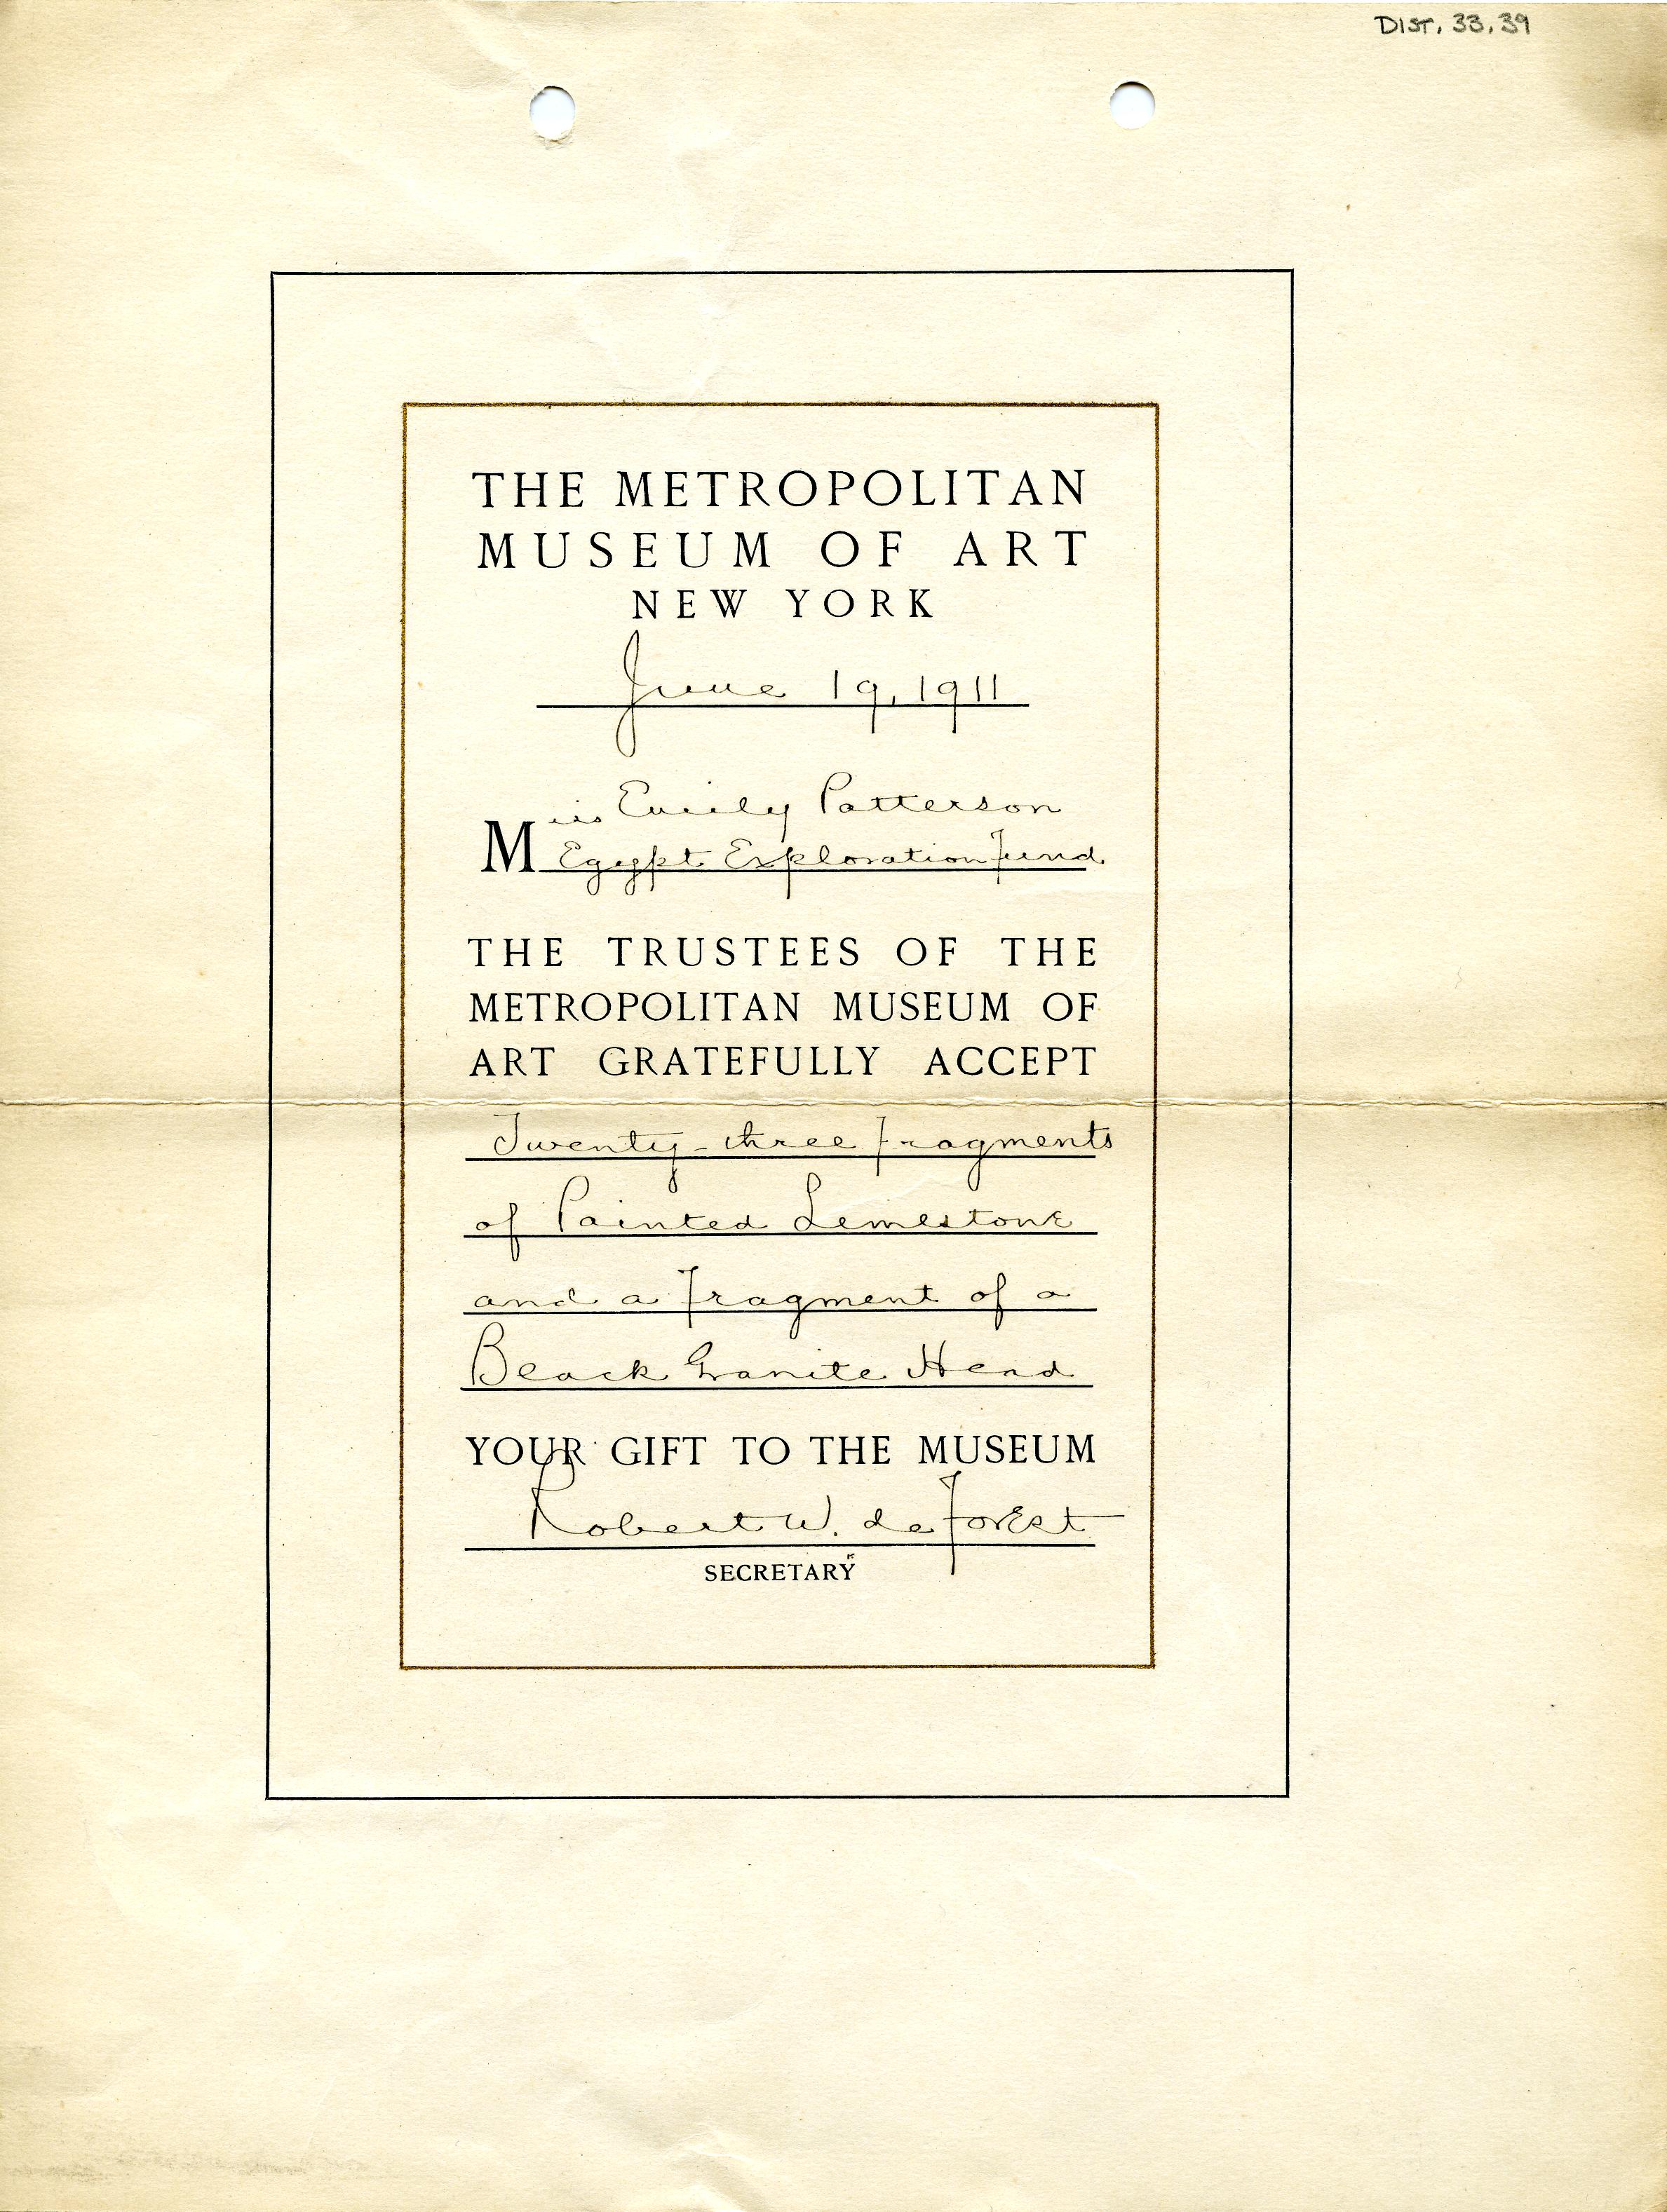 DIST. 33.39
THE METROPOLITAN
MUSEUM OF ART
NEW YORK
June 19, 1911
Miss Emily Patterson
Egypt Exploration Fund.
THE TRUSTEES OF THE
METROPOLITAN MUSEUM OF
ART GRATEFULLY ACCEPT
Twenty-three fragments
of Painted Limestone
and a fragment of a
Black Granite Head
YOUR GIFT TO THE MUSEUM
Robert W. de Forest
SECRETARY